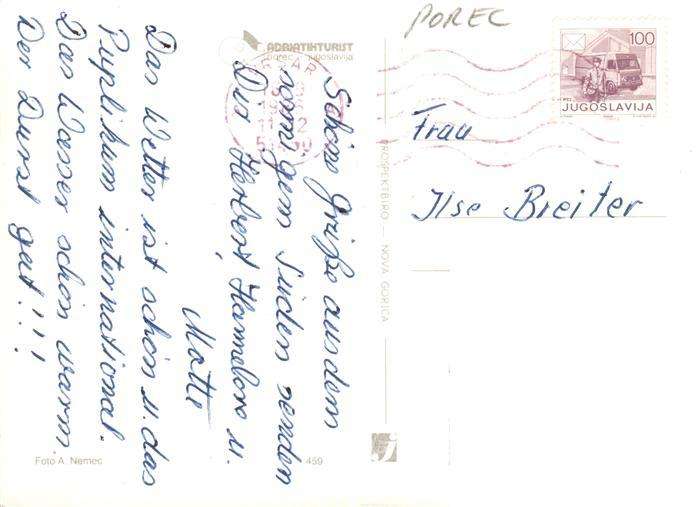 POREC
100
JUGOSLAVIJA
ADRIATIKTURIST
poreč - jugoslavija
Frau
Ilse Breiter
Schöne Grüße aus dem
sonnigem Süden senden
Dir Herbert, Hannelore u.
Motte
Das Wetter ist schön u. das
Puplikum international.
Das Wasser schon warm.
Der Durst gut!!!
PROSPEKTBIRO — NOVA GORICA
Foto A. Nemec
459